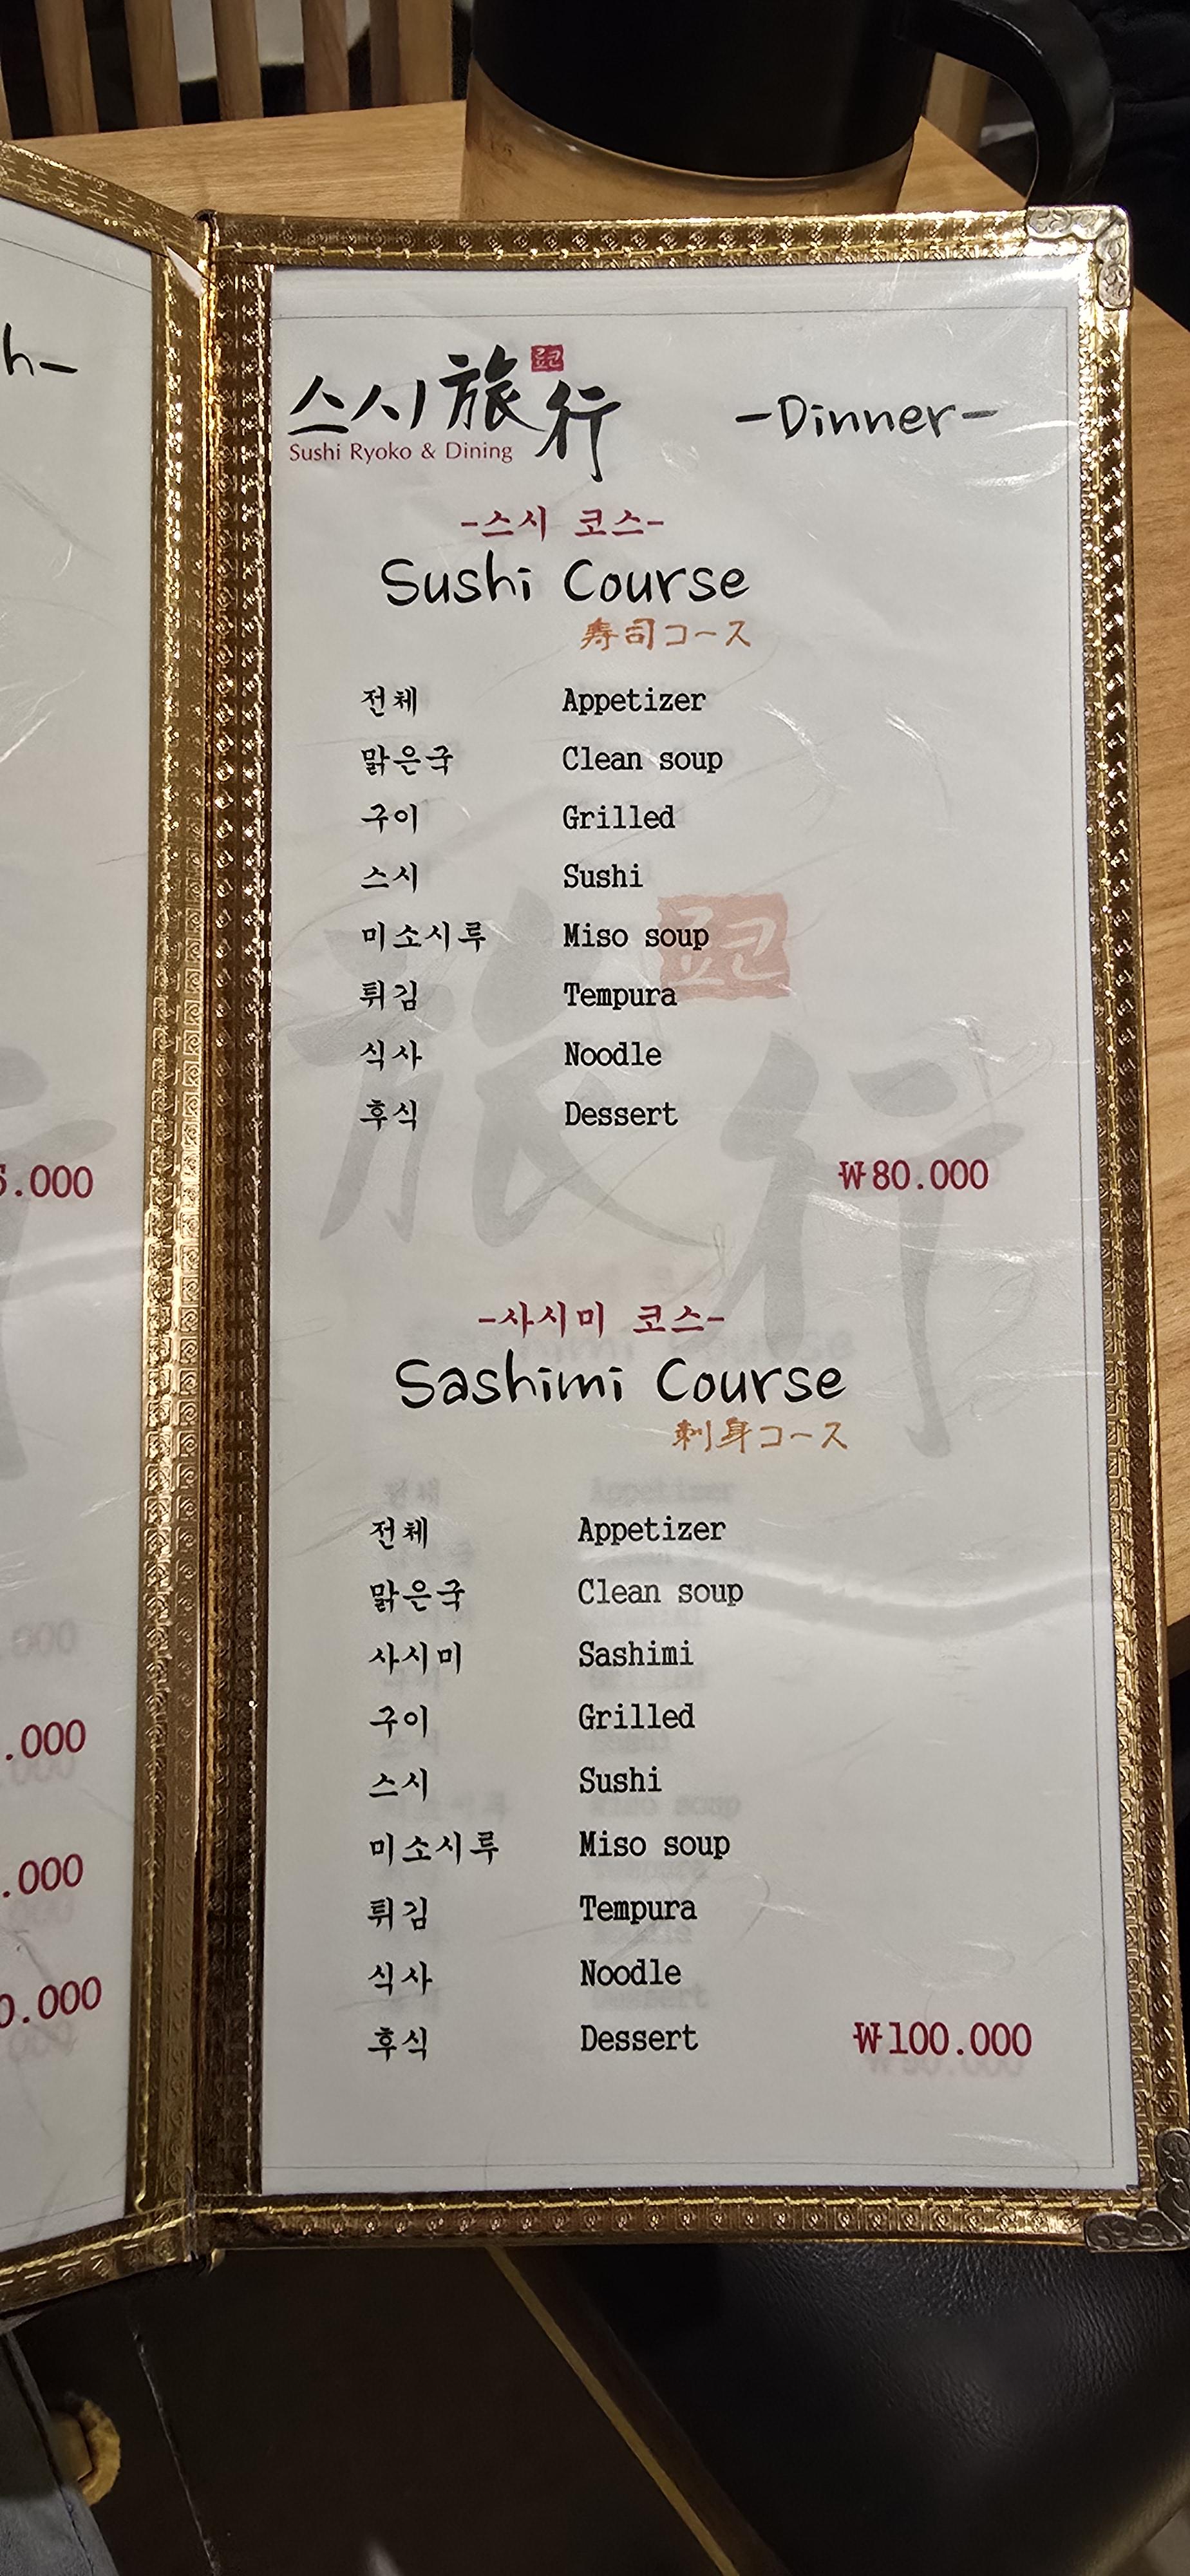 h-
.000
.000
.000
0.000
스시 旅行
료코
Sushi Ryoko & Dining
-Dinner-
-스시 코스-
Sushi Course
寿司コース
전체 Appetizer
맑은국 Clean soup
구이 Grilled
스시 Sushi
미소시루 Miso soup
튀김 Tempura
식사 Noodle
후식 Dessert
₩80.000
-사시미 코스-
Sashimi Course
刺身コース
전체 Appetizer
맑은국 Clean soup
사시미 Sashimi
구이 Grilled
스시 Sushi
미소시루 Miso soup
튀김 Tempura
식사 Noodle
후식 Dessert ₩100.000
旅行
료코